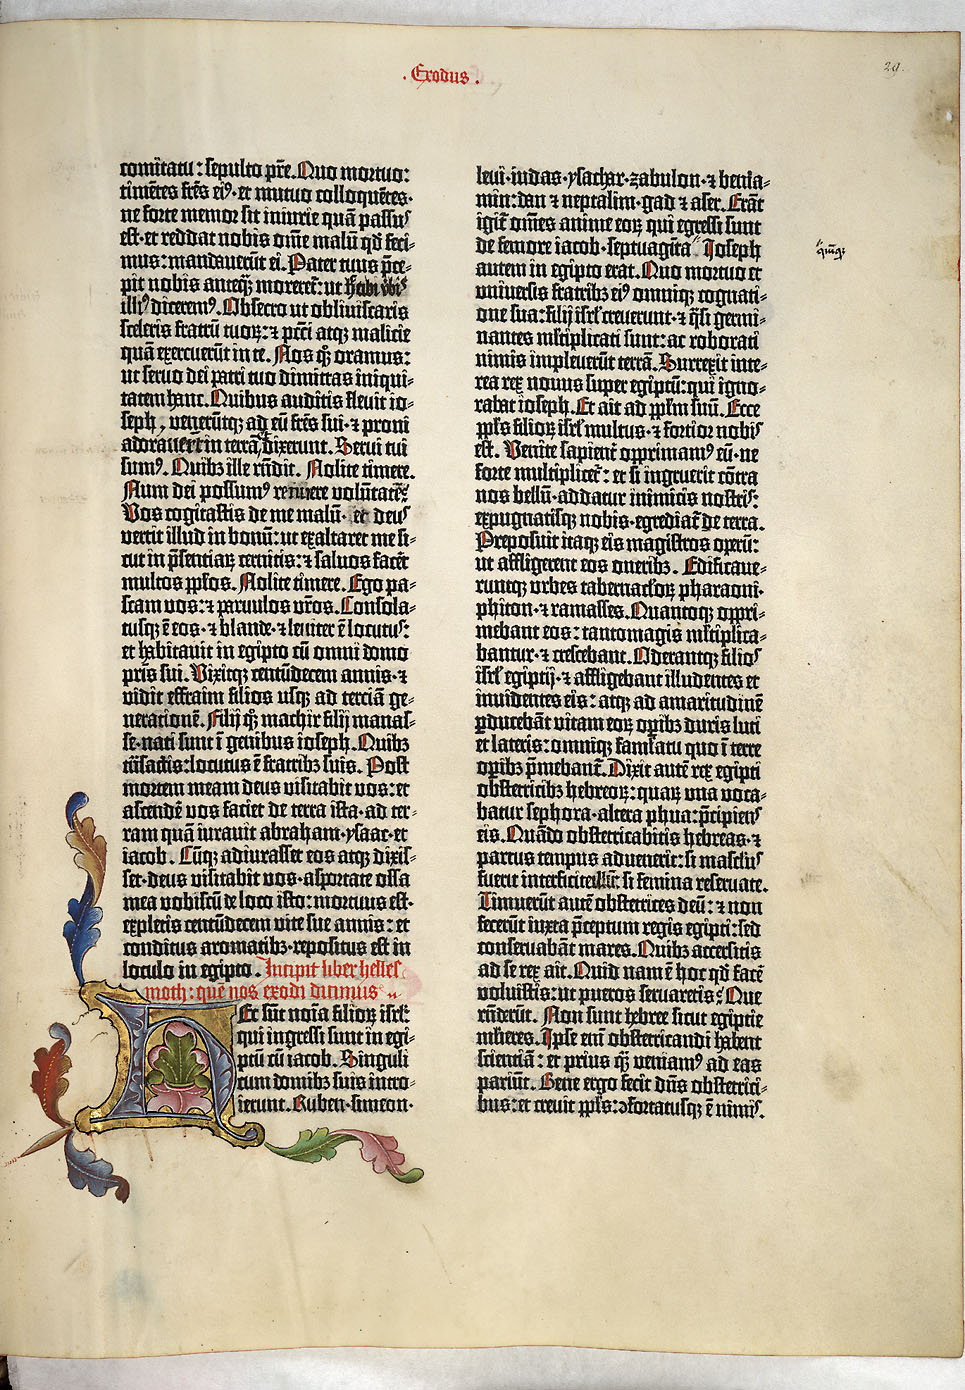 · Exodus ·
29.
comitatu: sepulto pr̄e. Quo mortuo:
timētes fr̄es eiꝰ· et mutuo colloquētes·
ne forte memor sit iniurie quā passus
est· et reddat nobis om̄e malū qd̄ feci-
mus: mandauerūt ei. Pater tuus p̄ce-
pit nobis anteq̄ꝫ moreret᷑: ut
illiꝰ diceremꝰ. Obsecro ut obliuiscaris
sceleris fratrū tuoꝝ: ⁊ pctī atqꝫ malicie
quā exercuerūt in te. Nos qꝫ oramus:
ut seruo dei patri tuo dimittas iniqui-
tatem hanc. Quibus auditis fleuit io-
seph, venerūtqꝫ ad eū fr̄es sui· ⁊ proni
adorauerūt in terrā dixerunt. Serui tui
sumꝰ. Quibꝫ ille rn̄dit. Nolite timere.
Num dei possumꝰ rennuere volūtatē?
Vos cogitastis de me malū· et deus
vertit illud in bonū: ut exaltaret me si-
cut in p̄sentiaꝝ cernitis: ⁊ saluos facēt
multos pp̄los. Nolite timere. Ego pa-
scam vos: ⁊ paruulos vr̄os. Consola-
tusqꝫ ē eos· ⁊ blande· ⁊ leniter ē locutus:
et habitauit in egipto cū omni domo
pr̄is sui. Vixitqꝫ centūdecem annis· ⁊
vidit effraim filios usqꝫ ad terciā ge-
nerationē. Filij qꝫ machir filij manas-
se· nati sunt ī genibus ioseph. Quibꝫ
trāsactis: locutus ē fratribꝫ suis. Post
mortem meam deus visitabit vos: et
ascendē vos faciet de terra ista· ad ter-
ram quā iurauit abraham· ysaac· et
iacob. Cūqꝫ adiurasset eos atqꝫ dixis-
set· deus visitabit vos· asportate ossa
mea vobiscū de loco isto: mortuus est·
expletis centūdecem vite sue annis: et
conditus aromatibꝫ· repositus est in
loculo in egipto. Incipit liber helles
moth: quē nos exodi dicimus
Hec sūt noīa filioꝝ isrl̄:
qui ingressi sunt in egi-
ptū cū iacob. Singuli
cum domibꝫ suis intro-
ierunt. Ruben· simeon·
leui· iudas· ysachar· zabulon· ⁊ benia-
min: dan ⁊ neptalim· gad ⁊ aser. Erāt
igit᷑ om̄es anime eoꝝ qui egressi sunt
de femore iacob· septuagīta Ioseph
quinqꝫ
autem in egipto erat. Quo mortuo et
vniuersis fratribꝫ eiꝰ omniqꝫ cognati-
one sua: filij isrl̄ creuerunt· ⁊ q̄si germi-
nantes ml̄tiplicati sunt: ac roborati
nimis impleuerūt terrā. Surrexit inte-
rea rex nouus super egiptū: qui igno-
rabat ioseph. Et ait ad pp̄lm suū. Ecce
pp̄ls filioꝝ isrl̄ multus· ⁊ fortior nobis
est. Venite sapient᷑ opprimamꝰ eū· ne
forte multiplicet᷑: et si ingruerit cōtra
nos bellū· addatur inimicis nostris:
expugnatisqꝫ nobis· egrediat᷑ de terra.
Preposuit itaqꝫ eis magistros operū:
ut affligerent eos oneribꝫ. Edificaue-
runtqꝫ urbes tabernacl̄oꝝ pharaoni·
phiton· ⁊ ramasses. Quantoqꝫ oppri-
mebant eos: tantomagis ml̄tiplica-
bantur· ⁊ crescebant. Oderantqꝫ filios
isrl̄ egiptij· ⁊ affligebant illudentes et
inuidentes eis: atqꝫ ad amaritudinē
ꝑducebāt vitam eoꝝ oꝑibꝫ duris luti
et lateris: omniqꝫ famul̄atu quo ī terre
oꝑibꝫ p̄mebant᷑. Dixit autē rex egipti
obstetricibꝫ hebreoꝝ: quaꝝ vna voca-
batur sephora· altera phua: p̄cipiens
eis. Quādo obstetricabitis hebreas· ⁊
partus tempus aduenerit: si masclus
fuerit interficite illū: si femina reseruate.
Timuerūt autē obstetrices deū: ⁊ non
fecerūt iuxta p̄ceptum regis egipti: sed
conseruabāt mares. Quibꝫ accersitis
ad se rex ait. Quid nam ē hoc qd̄ facē
voluistis: ut pueros seruaretis? Que
rn̄derūt. Non sunt hebree sicut egiptie
ml̄ieres. Ipse eni obstetricandi habent
scientiā: et prius q̄ꝫ veniamꝰ ad eas
pariūt. Bene ergo fecit dn̄s obstetrici-
bus: et creuit pp̄ls: ꝯfortatusqꝫ ē nimis.